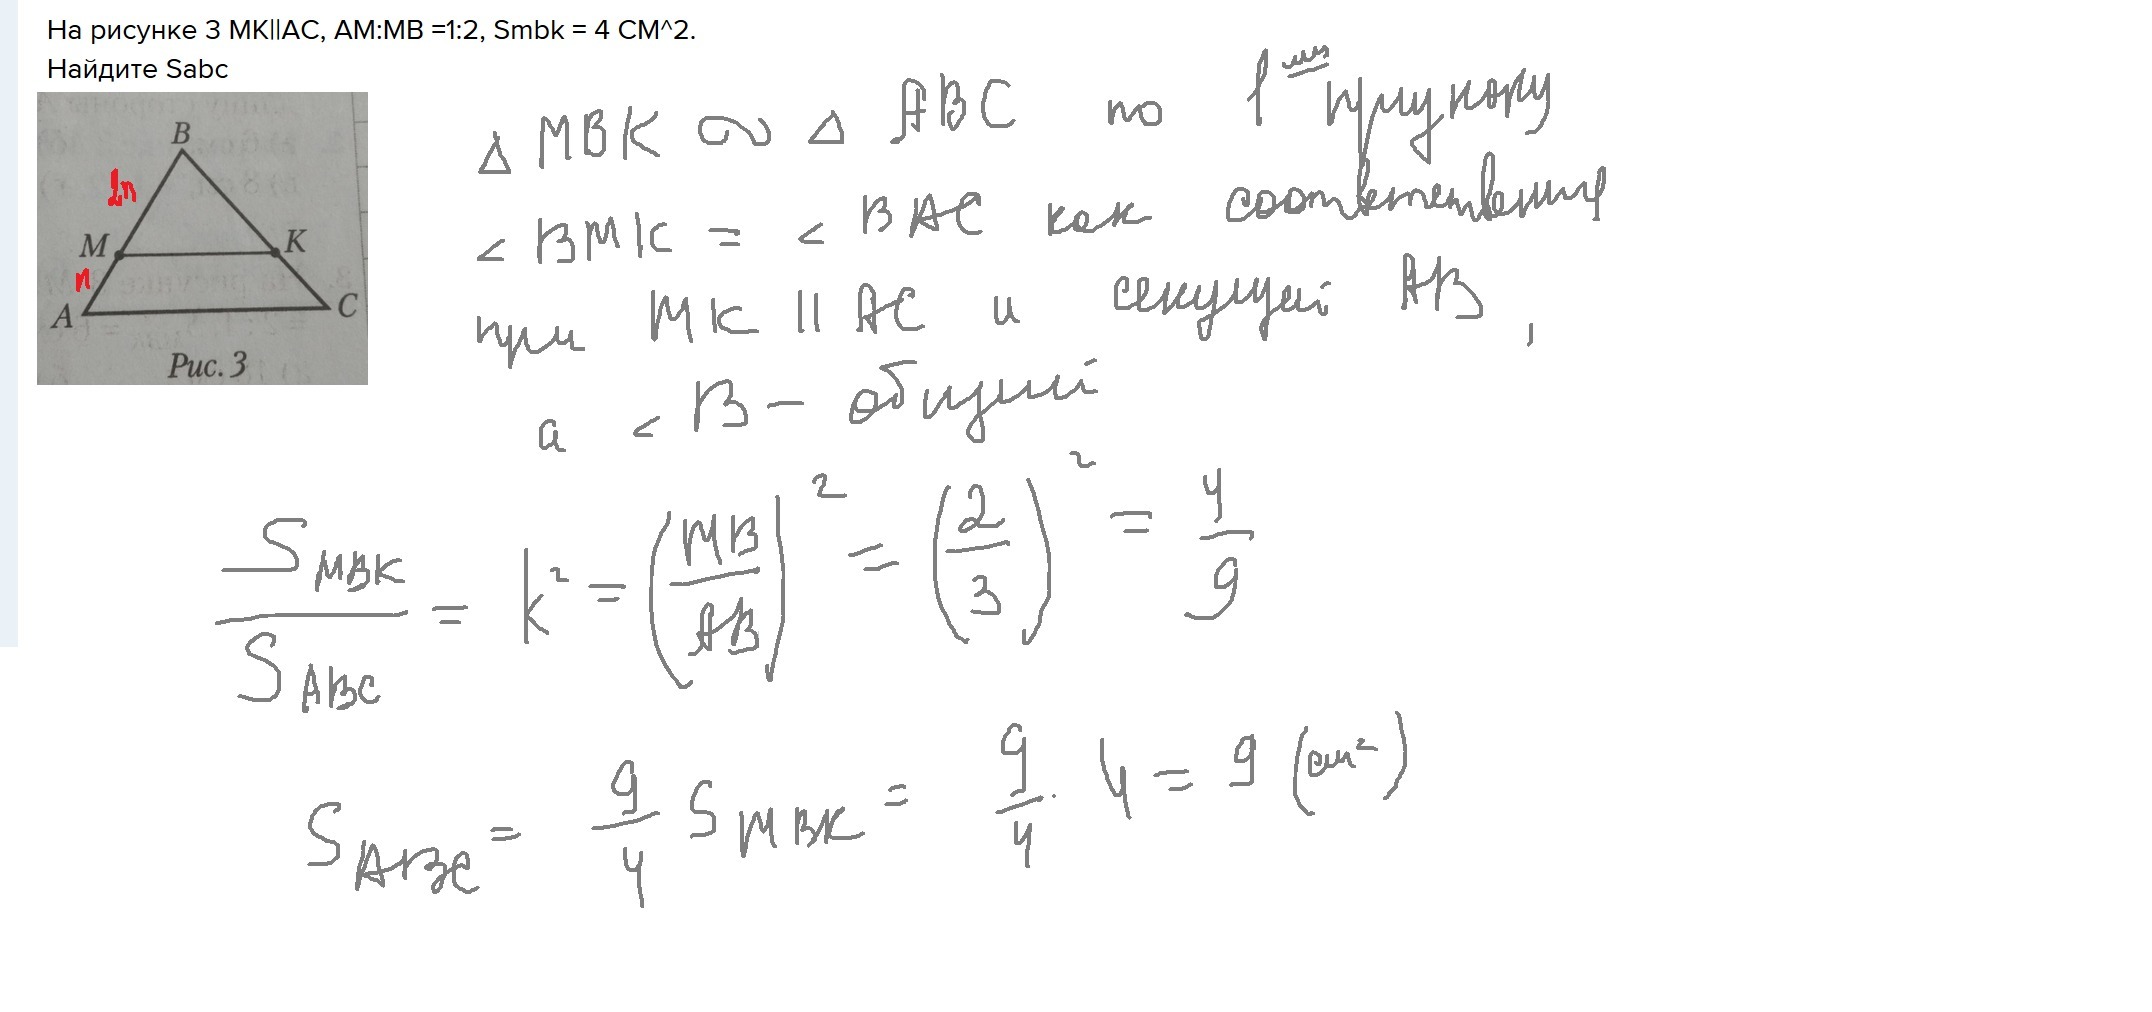 На рисунке 3 MK||AC, AM:MB =1:2, Smbk = 4 СМ^2.
Найдите Sabc
B
2n
M
K
n
A
C
Рис. 3
△ MBK ∾ △ ABC по 1 признаку
< BMK = < BAC как соответственные
при MK || AC и секущей AB ,
а < B - общий
S MBK / S ABC = k² = (MB / AB)² = (2/3)² = 4/9
S ABC = 9/4 S MBK = 9/4 · 4 = 9 (см²)